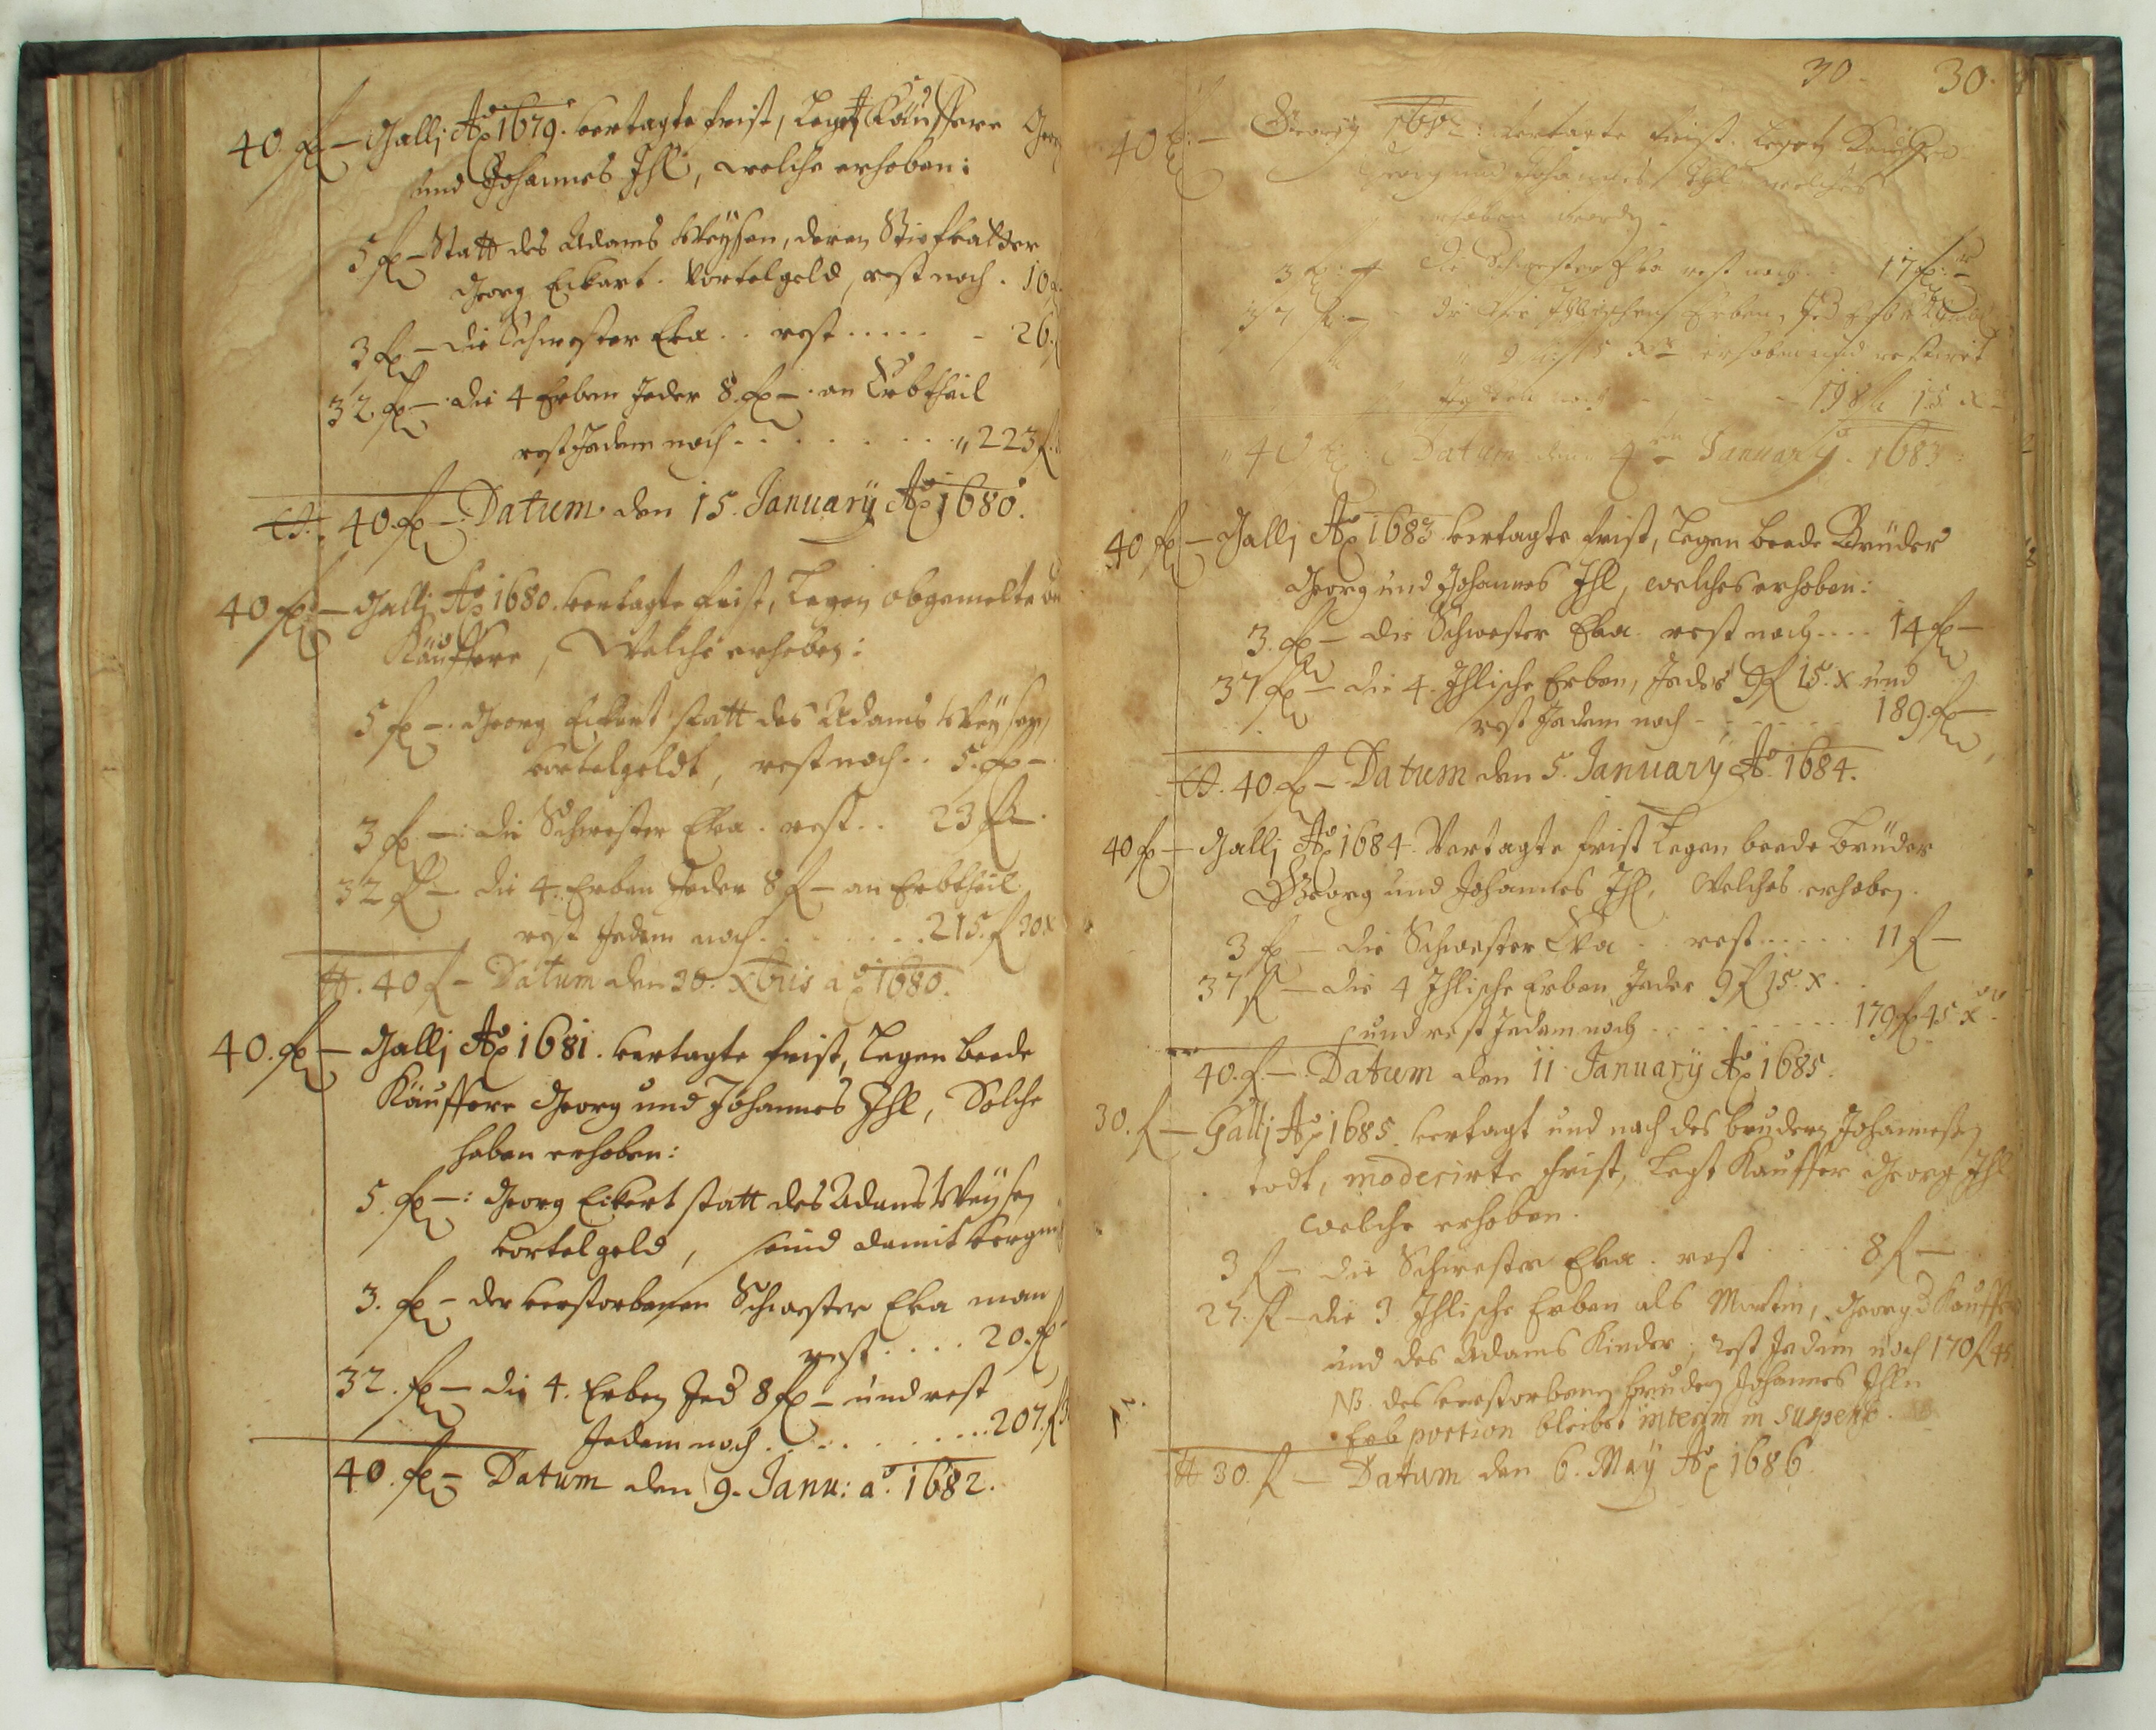 40. fl — Gallj Ao 1679. vertagte frist, Legt Käuffere
und Johannes Ihl, welche erhoben:
5 fl — Statt des Adams Weÿsen, deren Stiefvatter
Georg Eckart. Vortelgeld, rest noch . 10
3 fl — die Schwester Eva .. rest ..... 26.
32. fl — die 4 Erben Jeder 8. fl — an Erbtheil
rest Jedem noch ........ 223 f.
40. fl — Datum den 15. Januarÿ Ao 1680.
40 fl — Gallj Ao 1680. vertagte frist, Legen obgemelte
Käuffere, Welche erheben:
5 fl — Georg Eckert statt des Adams Weÿsen,
vortelgeldt, rest noch .. 5. fl —
3 fl. —: die Schwester Eva . rest .. 23 fl.
32 fl — die 4. Erben Jeder 8 fl — an Erbtheil
rest Jedem noch ....... 215. fl 30 x
40 fl — Datum den 30. Xbris ao 1680.
40. fl — Gallj Ao 1681. vertagte frist, Legen beede
Käuffere Georg und Johannes Ihl, Solche
haben erhoben:
5. fl —: Georg Eckert statt des Adams Weÿsen
vortelgeld, seind damit
3. fl — der verstorbenen Schwester Eva man
rest .... 20. fl
32. fl — die 4. Erben Jed 8 fl — und rest
Jedem noch ......... 207. fl
40. fl — Datum den 9. Janu: ao. 1682.
30. 30.
40 fl. — vertagte frist. Legen
Georg und Johannes Ihl welches
erhoben
3 fl. die Schwester Eva rest noch 17 fl.
37 fl. — die Ihlischen Erben,
erhoben und restirt
198 fl 15 x
40 fl. Datum den 4ten Januarÿ. 1683.
40 fl — Gallj Ao 1683 vertagte frist, Legen beede Brüder
Georg und Johannes Ihl, welches erhoben:
3. fl — die Schwester Eva. rest noch .... 14 fl —
37 fl — die 4. Ihlische Erben, Jeder 9 fl 15. x und
rest Jedem noch ....... 189. fl —
40 fl — Datum den 5. Januarÿ Ao. 1684.
40 fl — Gallj Ao 1684. Vertagte frist Legen beede brüder
Georg und Johannes Ihl, Welches erhoben.
3 fl — die Schwester Eva .. rest ..... 11 fl —
37 fl — die 4 Ihlische Erben Jeder 9 fl 15. x.
und rest Jedem noch ......... 179 fl. 45 x.
40. fl. — Datum den 11 Januarÿ Ao 1685.
30. fl — Gallj Ao 1685. vertagt und nach des bruders Johannesen
todt, moderirte frist, Legt Kauffer Georg Ihl
welche erhoben.
3 fl — die Schwester Eva . rest .... 8 fl —
27. fl — die 3 Ihlische Erben als Martin, Georg Käuffer
und des Adams Kinder, rest Jedem noch 170 fl 45
NB. des verstorbenen bruders Johannes Ihln
Erb portion bleibet interim in suspenso.
30. fl — Datum den 6. Maÿ Ao 1686.